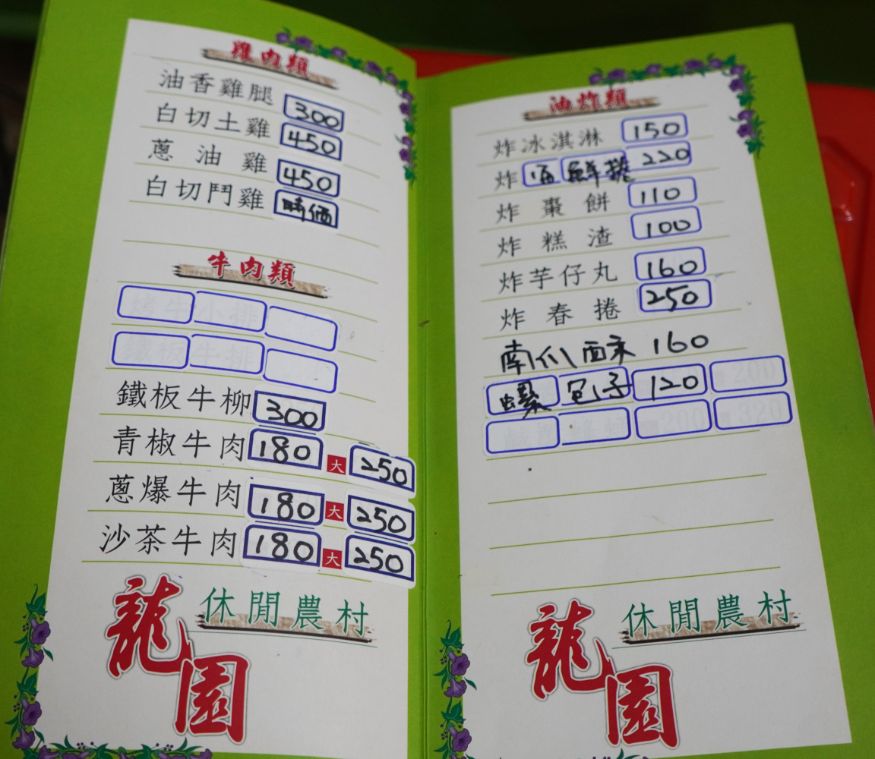 雞肉類
油香雞腿 300
白切土雞 450
蔥油雞 450
白切鬥雞 時価
牛肉類
鐵板牛柳 300
青椒牛肉 180 大 250
蔥爆牛肉 180 大 250
沙茶牛肉 180 大 250
龍園 休閒農村
油炸類
炸冰淇淋 150
炸 鮮捲 220
炸棗餅 110
炸糕渣 100
炸芋仔丸 160
炸春捲 250
南瓜 160
包子 120
龍園 休閒農村